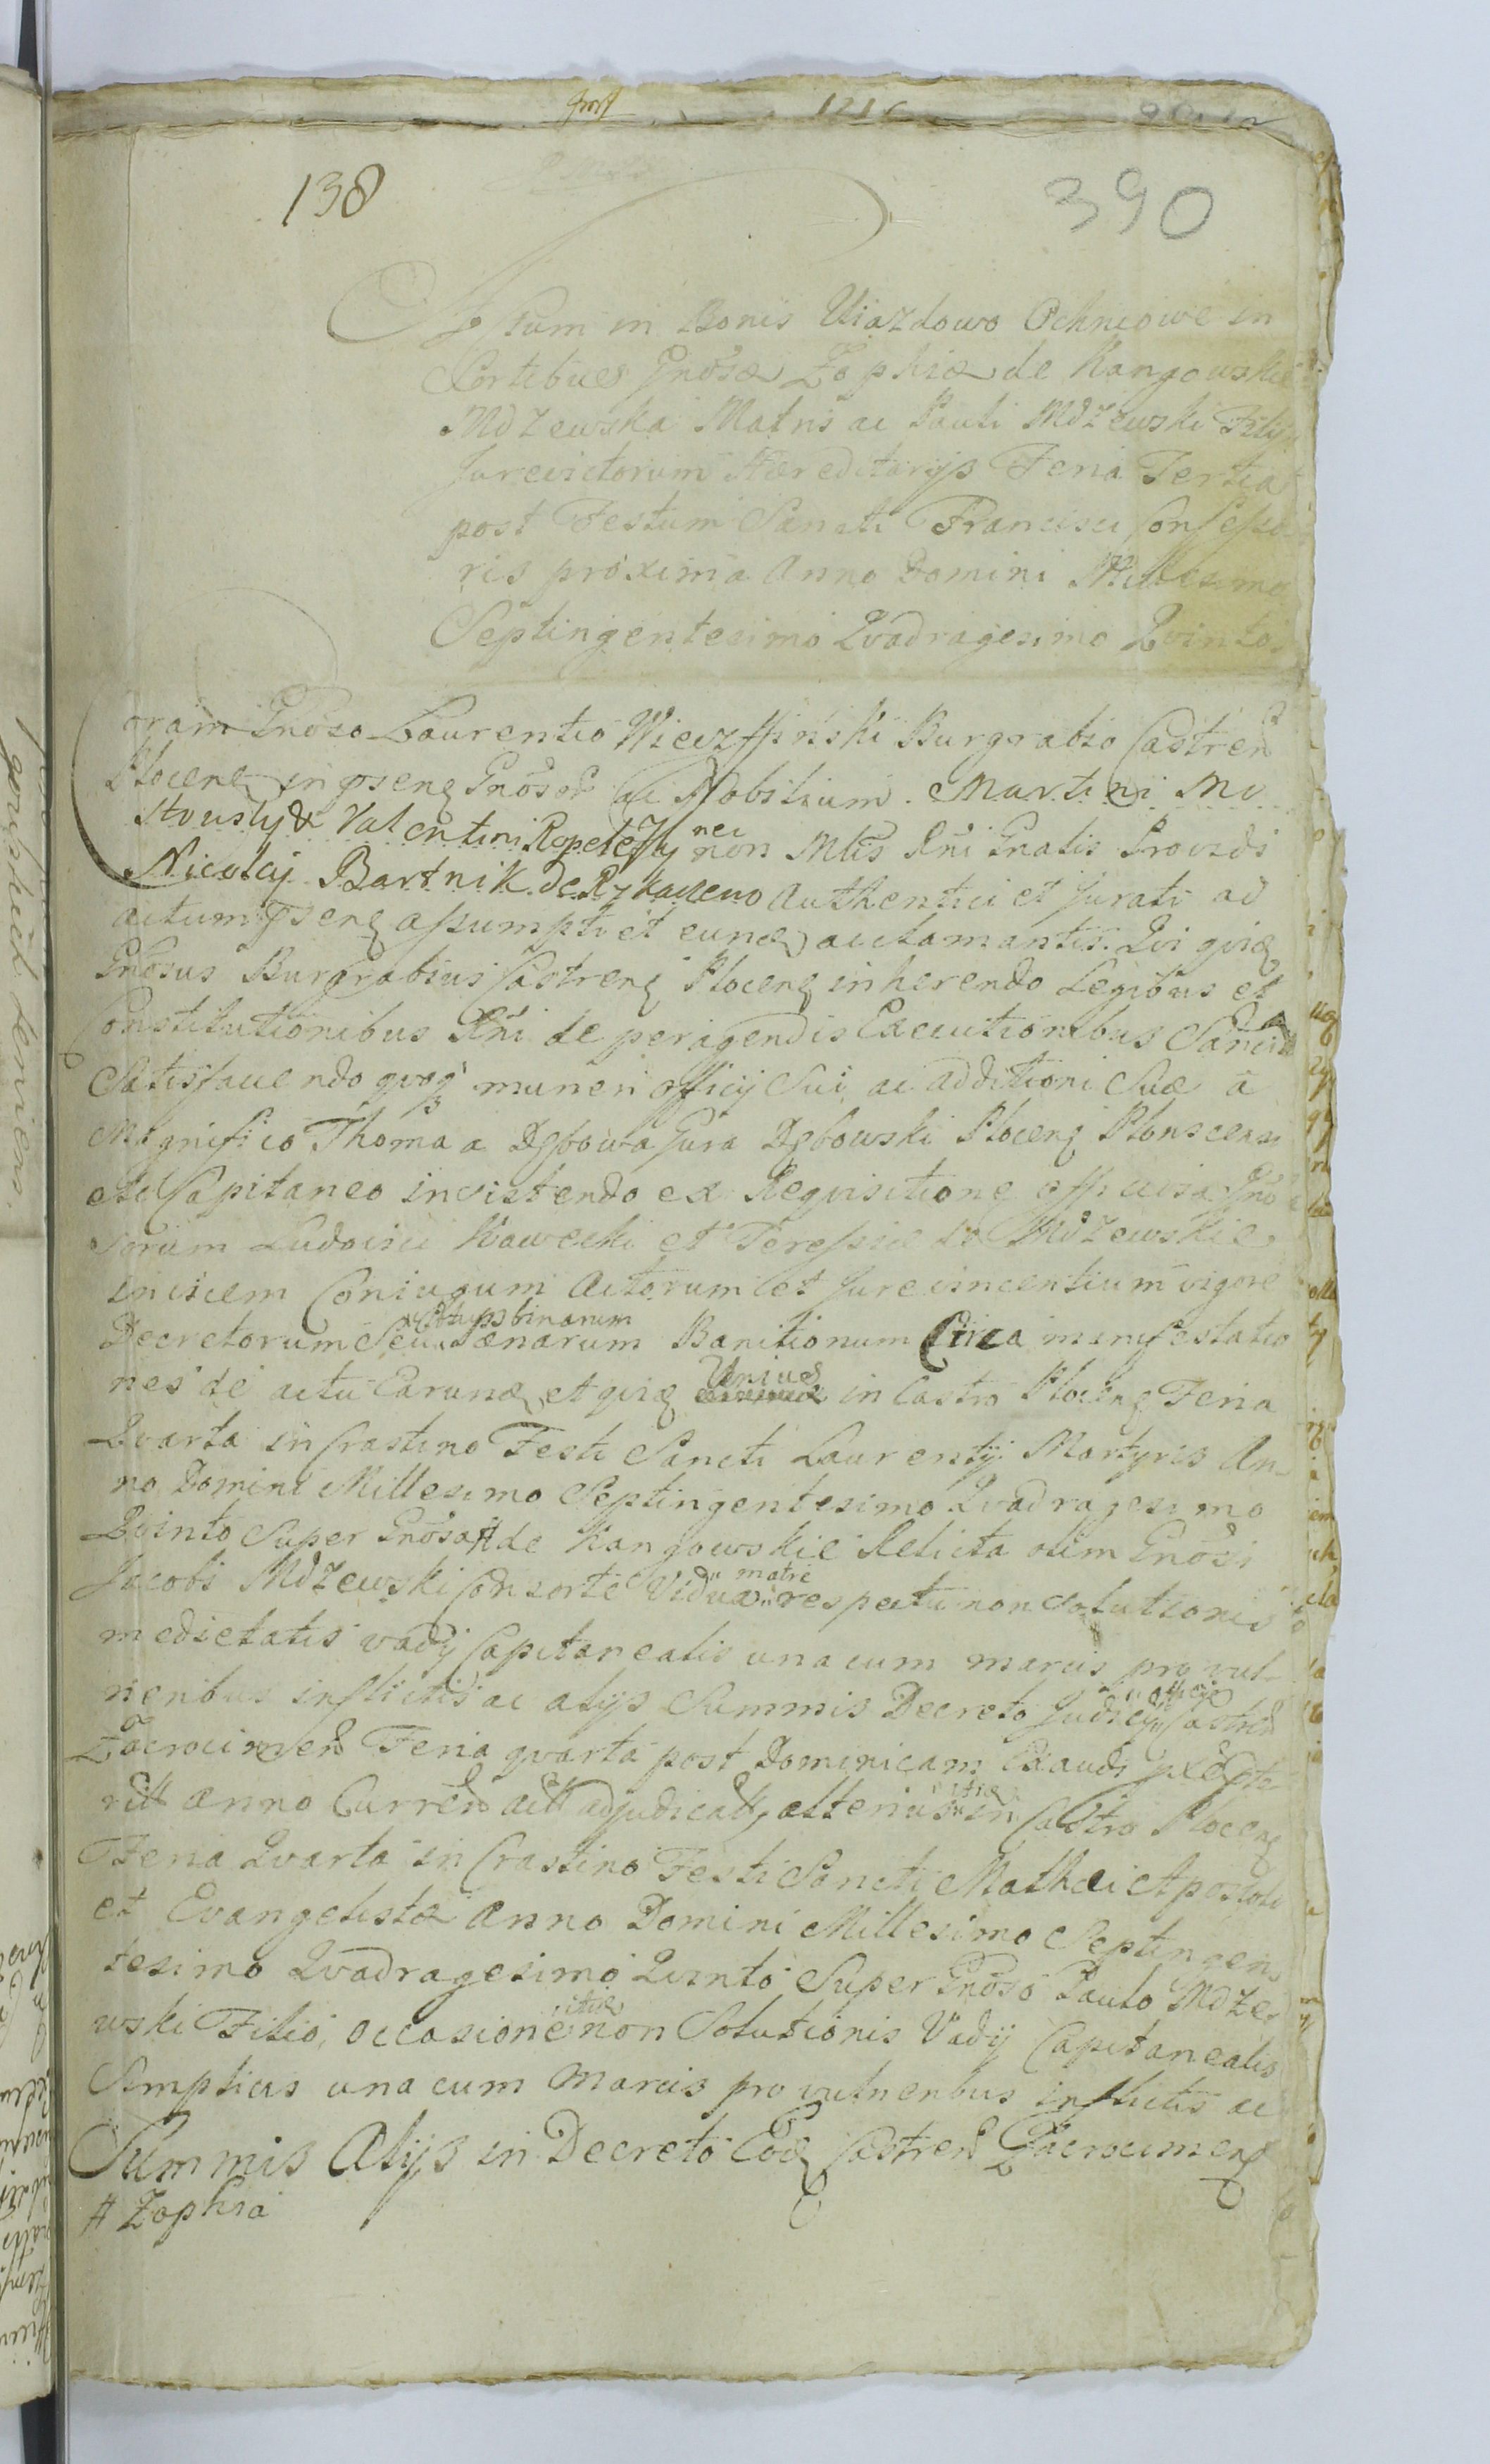 138
390
Actum in Bonis Uiazdowo Ochniowe in
Sortibus Gnosæ Zophiæ de Kangowskie
Mdzewska Matris ac Pauli Mdzewski Filij
Jurevictorum Hæreditarijs Feria Tertia
post Festum Sancti Francisci Confesso
ris proxima Anno Domini Millesimo
Septingentesimo Qvadragesimo Qvinto
Coram Gnoso Laurentio Burgrabio Castren
Plocen in psen Gnosor ac Nobilium Martini
& Valentini nec non Mlis Rni Gnalis Providi
Nicolaj Bartnik de Authentici et Jurati ad
actum psen assumpti et eund aclamantis. Qvi qvid
Gnosus Burgrabius Castren Plocen inherendo Legibus et
Constitutionibus Rni de peragendis Executionibus Sancit
Satisfaciendo qvoq muneri officij Sui ac additioni Suæ a
Magnifico Thoma a Dębowa Gura Dębowski Plocen Plonscensi
etc Capitaneo insistendo ex Reqvisitione officiosa Gno
sorum Ludovici Kawecki et Teressiæ de Mdzewskie
invicem Coniugum Actorum et Jurevincentium vigore
Decretorum Seu binarum Pænarum Banitionum Circa manifestatio
nes de actu Earund et qvid Unius in Castro Plocen Feria
Qvarta in Crastino Festi Sancti Laurentij Martyris An
no Domini Millesimo Septingentesimo Qvadragesimo
Qvinto Super Gnosa # de Kangowskie Relicta olim Gnosi
Jacobi Mdzewski Consorte Vidua " matre " respectu non Solutionis
medietatis vadij Capitanealis una cum marcis pro vul
neribus inflictis ac alijs Summis Decreto Judicij " officij " Castren
Zacrocimen Feria qvarta post Dominicam Exaudi
anno Curren adjudicat, alterius in Castro Plocen
Feria Qvarta in Crastino Festi Sancti Mathei Apostoli
et Evangelistæ Anno Domini Millesimo Septingen
tesimo Qvadragesimo Qvinto Super Gnoso Paulo Mdze
wski Filio, occasione itid non Solutionis Vadij Capitanealis
Simplicis una cum Marcis pro vulneribus inflictis ac
Summis Alijs in Decreto Eod Castren Zacrocimen
# Zophia